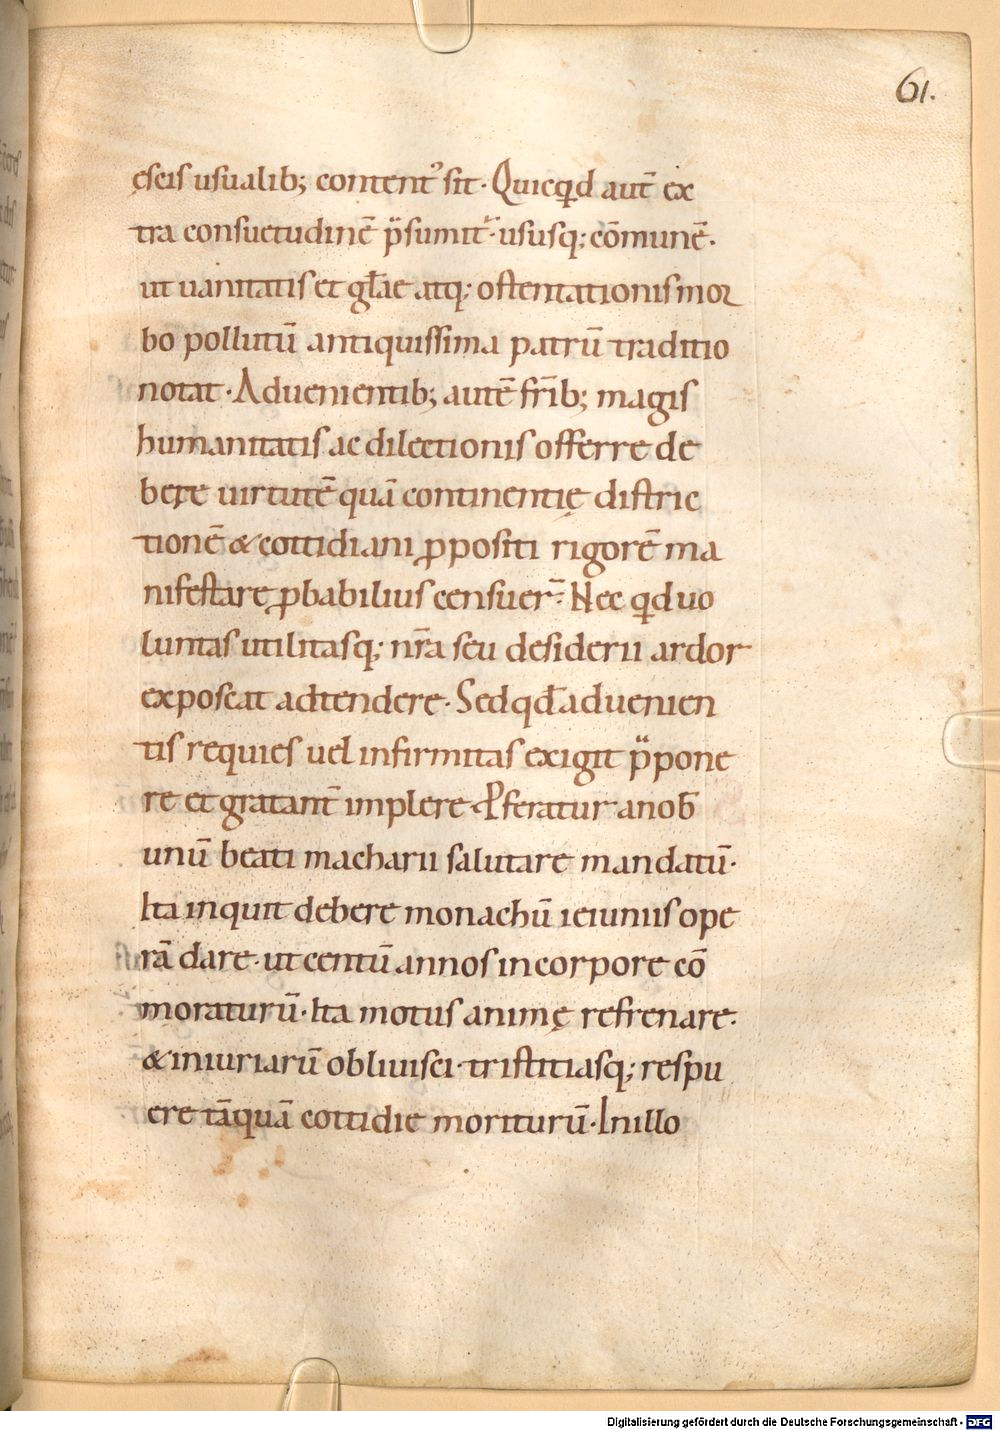 61.
ęscis usualib; content᾽ sit· Quicqͥd aut̄ ex
tra consuetudinē p̈sumit᷑· ususq; cōmunē·
ut uanitatis et gł̄ae atq; ostentationis mor
bo pollutū antiquissima patrū traditio
notat· Aduenientib; autē fr̄ib; magis
humanitatis ac dilectionis offerre de
bere uirtutē quā continentię distric
tionē & cottidiani ꝓpositi rigorē ma
nifestare ꝓbabilius censuer̄· Nec qͥd uo
luntas utilitasq; nr̄a seu desiderii ardor
exposcat adtendere· Sed qđ aduenien
tis requies uel infirmitas exigit p̈pone
re et gratant̄ implere· Pͥferatur a nob̄
unū beati macharii salutare mandatū·
Ita inquit debere monachū ieiuniis ope
rā dare· ut centū annos in corpore cō
moraturū· Ita motus animę refrenare·
& iniuriarū obliuisci· tristitiasq; respu
ere tāquā cottidie moriturū· In illo
Digitalisierung gefördert durch die Deutsche Forschungsgemeinschaft - DFG